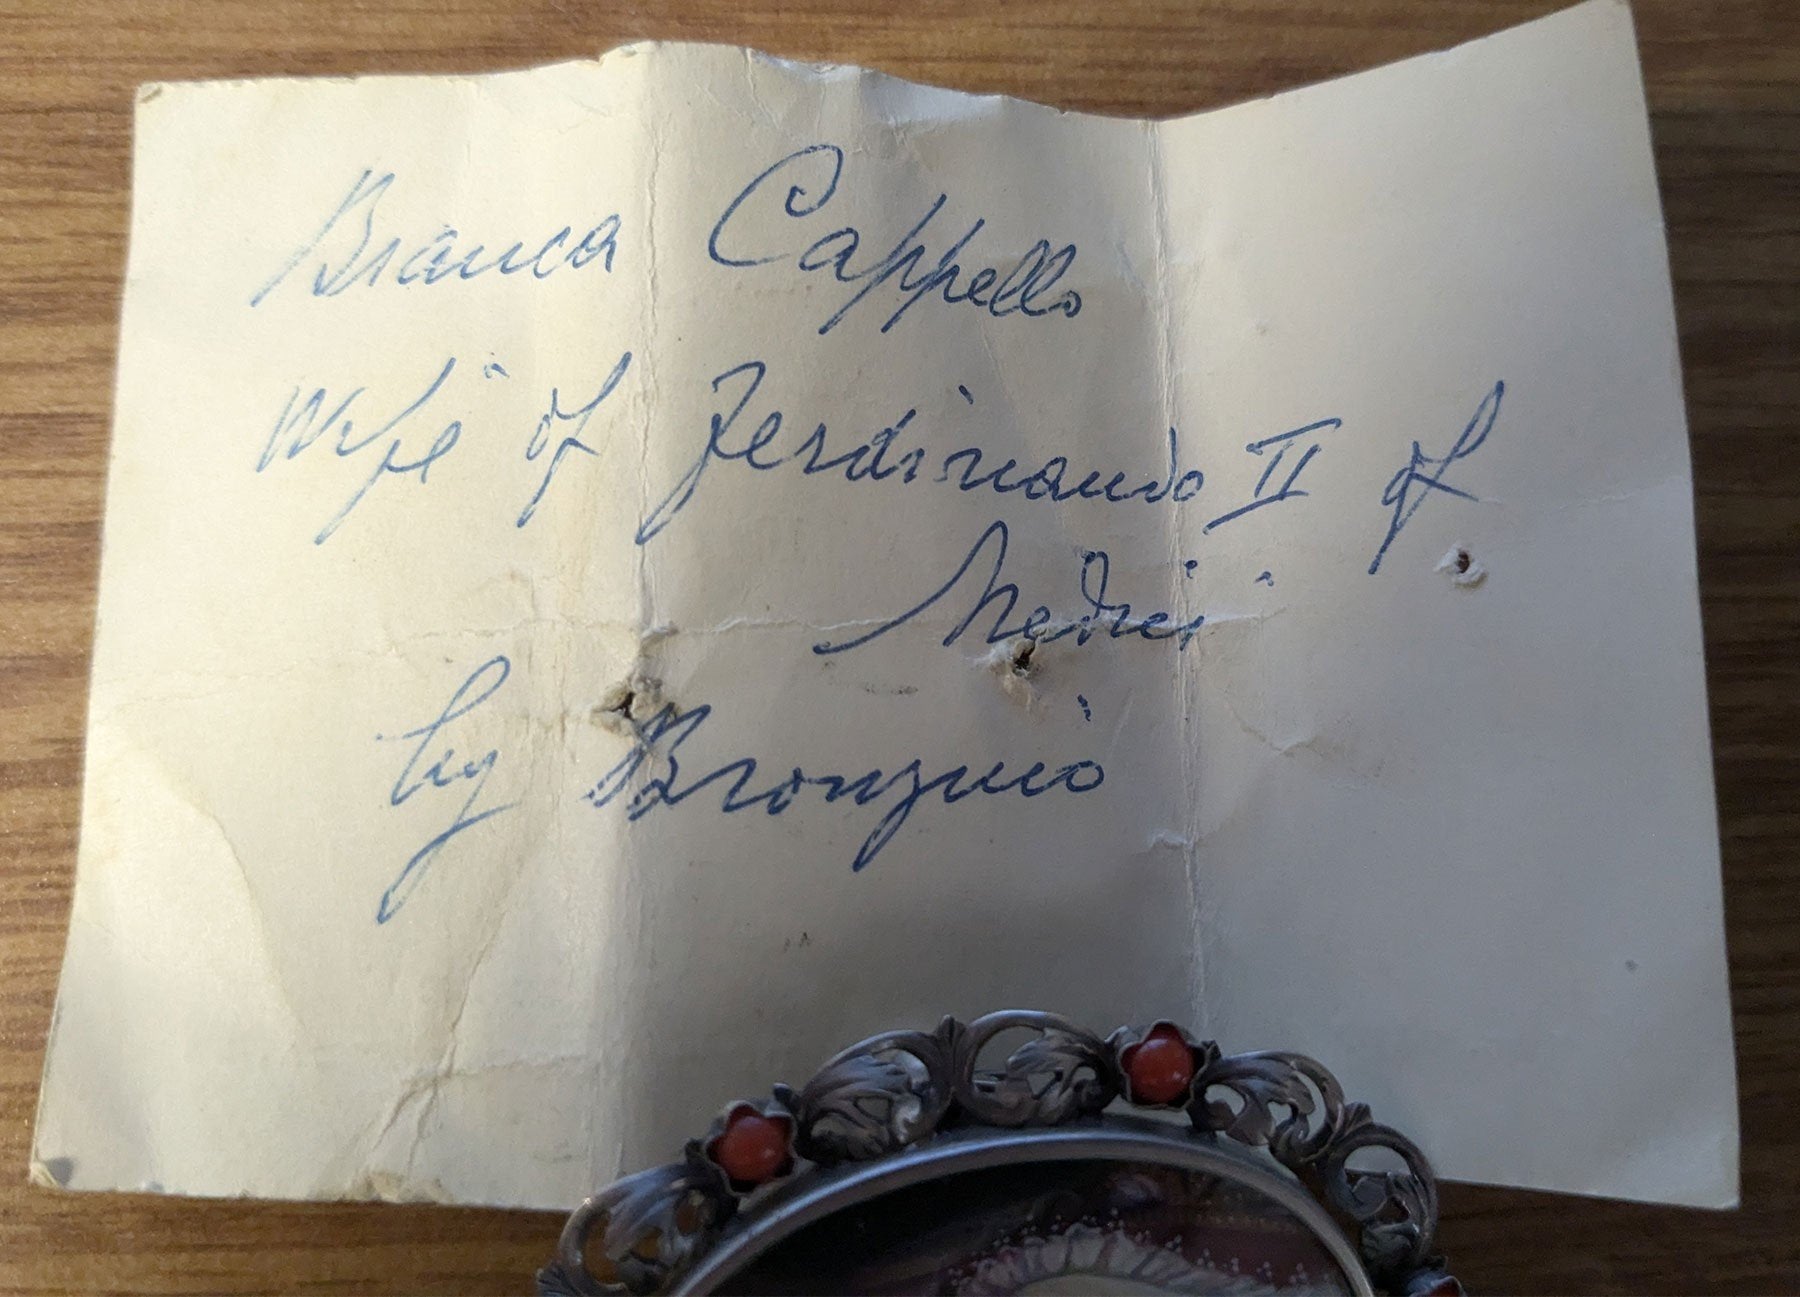 Bianca Cappello
Wife of Ferdinando II of
Medici
by Bronzino